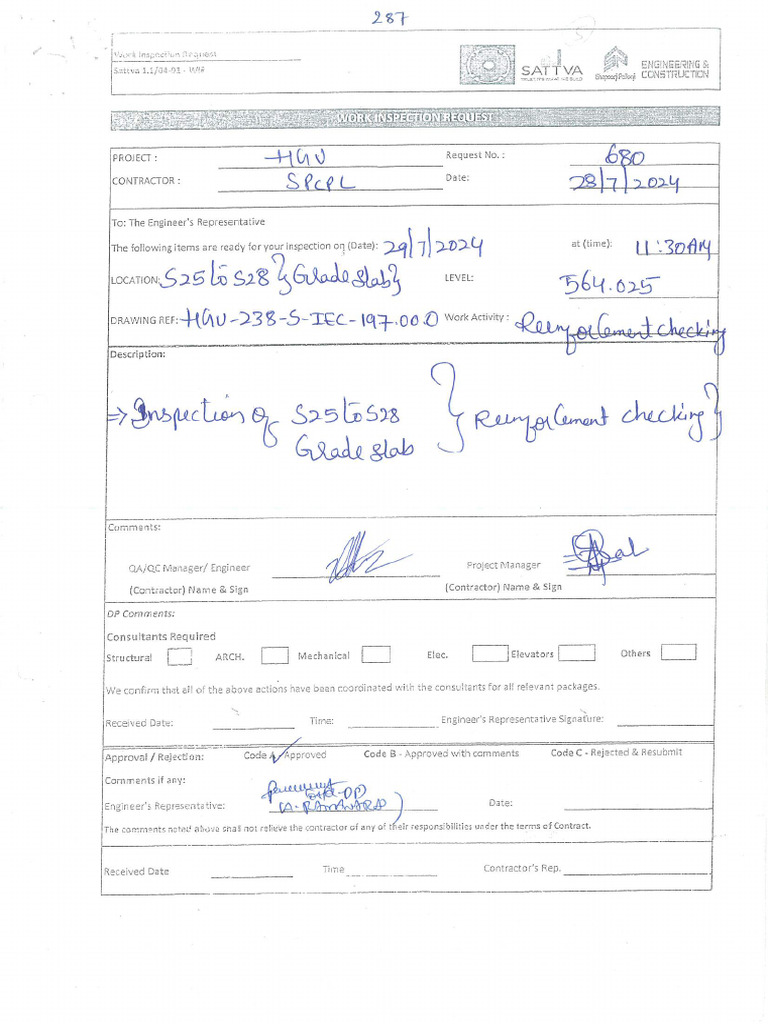 287
Work Inspection Request
Sattva 1.1/04-01 - WIR
SATTVA
Shapoorji Pallonji
ENGINEERING & CONSTRUCTION
WORK INSPECTION REQUEST
PROJECT : HGV Request No. : 680
CONTRACTOR : SPCPL Date: 28/7/2024
To: The Engineer's Representative
The following items are ready for your inspection on (Date): 29/7/2024 at (time): 11:30AM
LOCATION: S25 to S28 } Grade slab } LEVEL: 564.025
DRAWING REF: HGV-238-S-IEC-197.00.0 Work Activity : Reinforcement checking
Description:
=> Inspection of S25 to S28 Grade slab } Reinforcement checking }
Comments:
QA/QC Manager/ Engineer Project Manager
(Contractor) Name & Sign (Contractor) Name & Sign
DP Comments:
Consultants Required
Structural ARCH. Mechanical Elec. Elevators Others
We confirm that all of the above actions have been coordinated with the consultants for all relevant packages.
Received Date: Time: Engineer's Representative Signature:
Approval / Rejection: Code A - Approved Code B - Approved with comments Code C - Rejected & Resubmit
Comments if any:
Engineer's Representative: Date:
The comments noted above shall not relieve the contractor of any of their responsibilities under the terms of Contract.
Received Date Time Contractor's Rep.